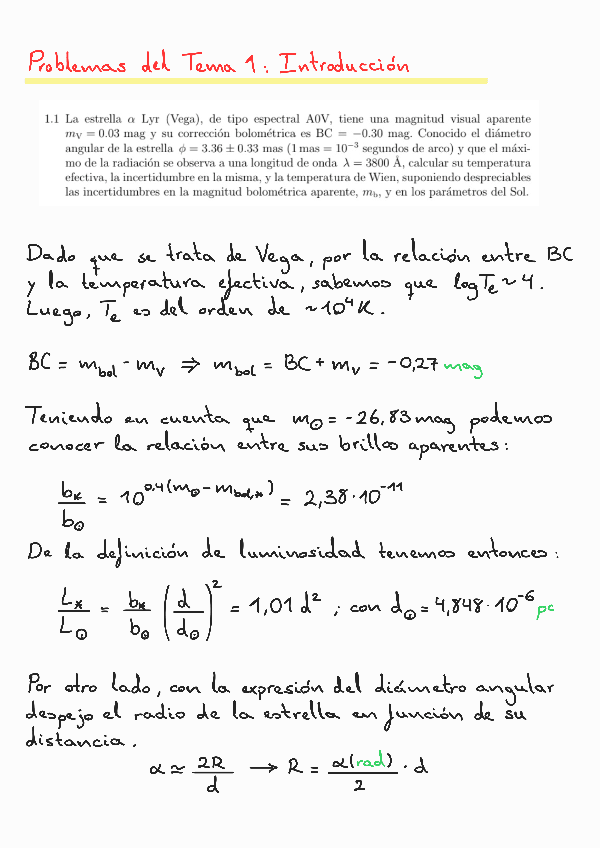 Problemas del Tema 1: Introducción
1.1 La estrella α Lyr (Vega), de tipo espectral A0V, tiene una magnitud visual aparente
m_V = 0.03 mag y su corrección bolométrica es BC = −0.30 mag. Conocido el diámetro
angular de la estrella ϕ = 3.36 ± 0.33 mas (1 mas = 10⁻³ segundos de arco) y que el máxi-
mo de la radiación se observa a una longitud de onda λ = 3800 Å, calcular su temperatura
efectiva, la incertidumbre en la misma, y la temperatura de Wien, suponiendo despreciables
las incertidumbres en la magnitud bolométrica aparente, m_b, y en los parámetros del Sol.
Dado que se trata de Vega, por la relación entre BC
y la temperatura efectiva, sabemos que log Te ~ 4.
Luego, Te es del orden de ~10⁴ K.
BC = m_bol - m_V ⇒ m_bol = BC + m_V = -0,27 mag
Teniendo en cuenta que m_⊙ = -26,83 mag podemos
conocer la relación entre sus brillos aparentes:
b_*/b_⊙ = 10^(0.4(m_⊙ - m_bol,*)) = 2,38·10⁻¹¹
De la definición de luminosidad tenemos entonces:
L_*/L_⊙ = b_*/b_⊙ (d/d_⊙)² = 1,01 d² ; con d_⊙ = 4,848·10⁻⁶ pc
Por otro lado, con la expresión del diámetro angular
despejo el radio de la estrella en función de su
distancia.
α ≃ 2R/d → R = α(rad)/2 · d